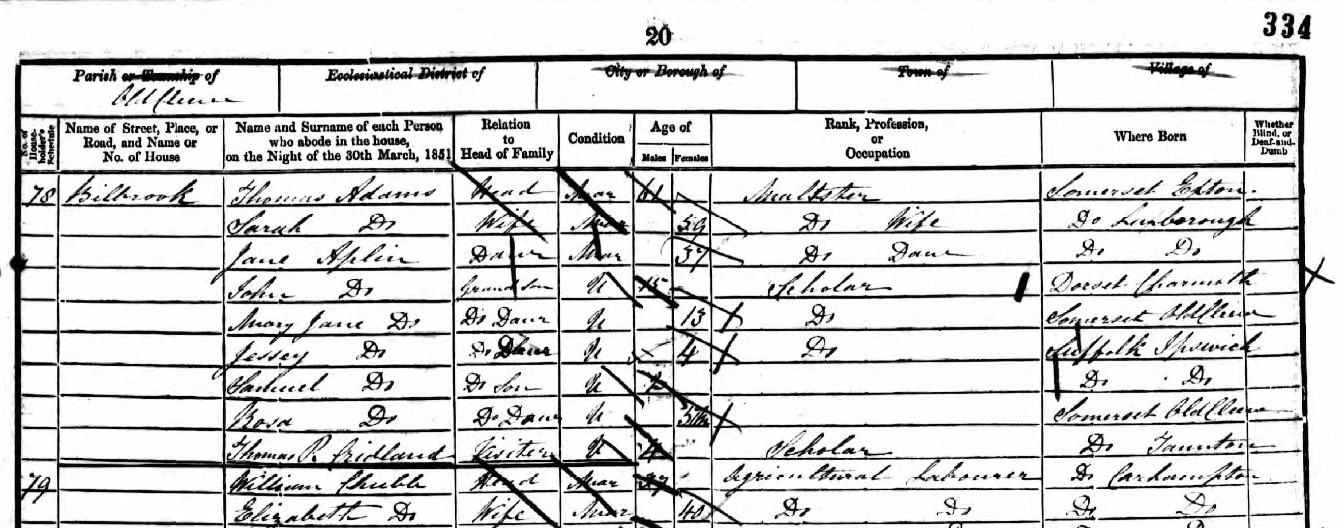 334
20
Parish or Township of Ecclesiastical District of City or Borough of Town of Village of
Old Cleeve
No. of House-holder's Schedule Name of Street, Place, or Road, and Name or No. of House Name and Surname of each Person who abode in the house, on the Night of the 30th March, 1851 Relation to Head of Family Condition Age of Males Females Rank, Profession, or Occupation Where Born Whether Blind, or Deaf-and-Dumb
78 Bilbrook Thomas Adams Head Mar 61 Maltster Somerset Exton
Sarah Do Wife Mar 59 Do Wife Do Luxborough
Jane Aplin Daur Mar 37 Do Daur Do Do
John Do Grandson U 15 Scholar Dorset Charmouth
Mary Jane Do Do Daur U 13 Do Somerset Old Cleeve
Jessey Do Do Daur U 4 Do Suffolk Ipswich
Samuel Do Do Son U Do Do
Rosa Do Do Daur U Somerset Old Cleeve
Thomas P. Cridland Visiter U Scholar Do Taunton
79 William Chubb Head Mar Agricultural Labourer Do Carhampton
Elizabeth Do Wife Mar 40 Do Do Do Do